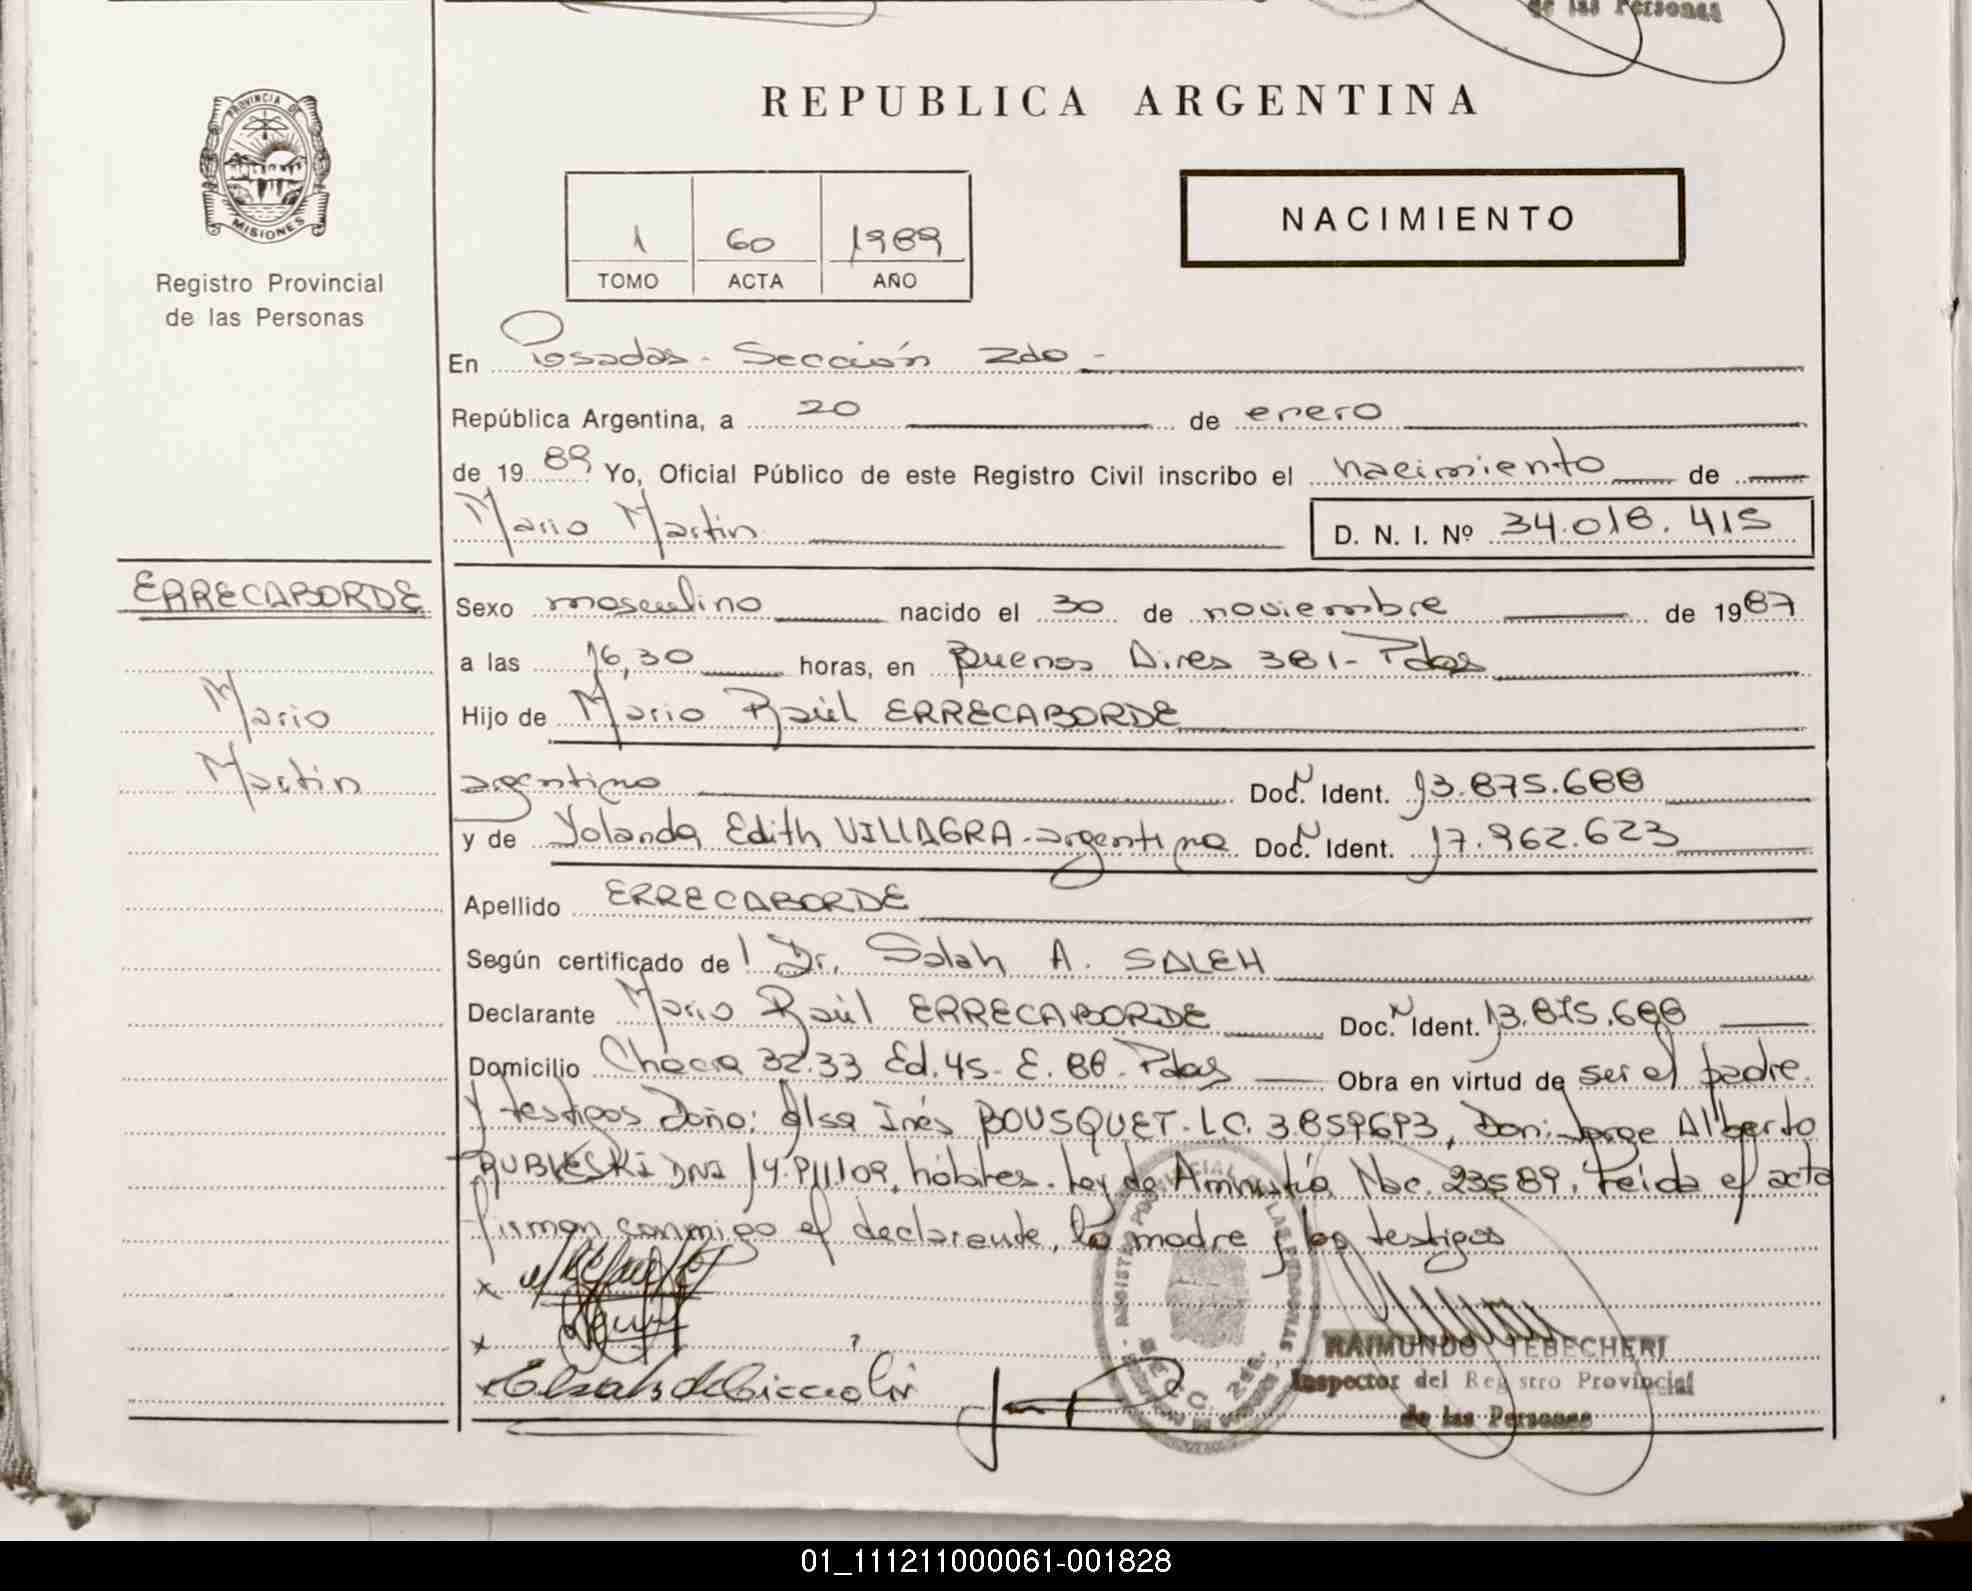 de las Personas
REPUBLICA ARGENTINA
PROVINCIA DE
MISIONES
Registro Provincial
de las Personas
1 60 1989
TOMO ACTA AÑO
NACIMIENTO
En Posadas - Sección 2da -
República Argentina, a 20 de enero
de 19 89 Yo, Oficial Público de este Registro Civil inscribo el nacimiento de
Mario Martin
D. N. I. Nº 34.018.415
ERRECABORDE
Mario
Martin
Sexo masculino nacido el 30 de noviembre de 1987
a las 16,30 horas, en Buenos Aires 381 - Pdas
Hijo de Mario Raúl ERRECABORDE
argentino Doc. N Ident. 13.875.688
y de Yolanda Edith VILLAGRA - argentina Doc. N Ident. 17.962.623
Apellido ERRECABORDE
Según certificado de l Dr. Salah A. SALEH
Declarante Mario Raúl ERRECABORDE Doc. N Ident. 13.875.688
Domicilio Chacra 32.33 Ed. 45 - E. 88 - Pdas Obra en virtud de ser el padre.
Y testigos Doña: Elsa Inés BOUSQUET - L.C. 3.859693, Don: Jorge Alberto
RUBLESKI DNI 14.911.109, hábiles. Ley de Amnistía Nac. 23589, Leída el acta
firman conmigo el declarante, la madre y los testigos
RAIMUNDO TEBECHERI
Inspector del Registro Provincial
de las Personas
SECC. 2da.
01_111211000061-001828